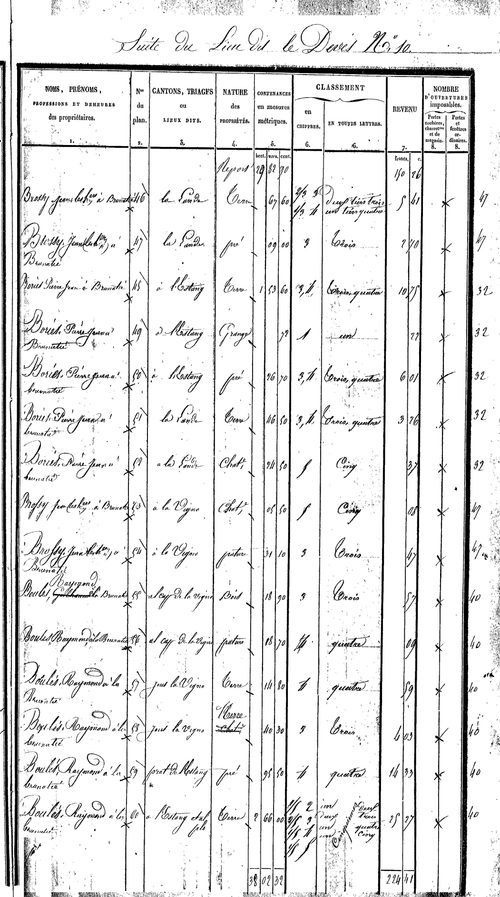 Suite du Lieu dit le Devés N.º 10.
NOMS, PRÉNOMS, PROFESSIONS ET DEMEURES des propriétaires. 1.
Nos du plan. 2.
CANTONS, TRIAGES ou LIEUX DITS. 3.
NATURE des PROPRIÉTÉS. 4.
CONTENANCES en mesures métriques. 5.
CLASSEMENT
en CHIFFRES. 6.
EN TOUTES LETTRES. 6.
REVENU 7.
NOMBRE D'OUVERTURES imposables.
Portes cochères, charretières et de magasin. 8.
Portes et fenêtres ordinaires. 8.
hect. ares. cent. francs. c.
Report 29 82 70 150 26
Brossy 46 la Lande Terre 67 60 2/3 3 1/3 4 Deux tiers trois un tiers quatre 5 41 47
Brossy 47 la Lande pré 09 00 3 Trois 2 70 47
Boriés Pierre Jean à Brunatié 48 à l'Estang Terre 1 53 60 3,4 Trois, quatre 10 75 32
Boriés, Pierre Jean à Brunatié 49 à l'Estang Grange 72 1 un 32
Boriés, Pierre Jean à brunatié 50 à l'Estang pré 26 70 3,4 Trois, quatre 6 01 32
Boriés, Pierre Jean à brunatié 51 la Lande Terre 46 50 3,4 Trois, quatre 3 26 32
Boriés, Pierre Jean à brunatié 52 à la Lande Chat. 24 50 5 Cinq 37 32
Brossy à Brunatié 53 à la Vigne Chat. 05 50 5 Cinq 08 47
Brossy à Brunatié 54 à la Vigne pature 31 10 3 Trois 47 47
Boulés Raymond Brunatié 55 al cap de la vigne Bois 18 90 3 Trois 57 40
Boulés Raymond à la Brunatié 56 al cap de la vigne pature 18 70 4 quatre 09 40
Boulés, Raymond à la Brunatié 57 sous la Vigne Terre 14 80 4 quatre 59 40
Boulés, Raymond à la brunatié 58 sous la vigne Terre 40 30 3 Trois 4 03 40
Boulés, Raymond à la brunatié 59 prat de l'Estang pré 95 50 4 quatre 14 33 40
Boulés, Raymond à la brunatié 60 à l'Estang Terre 2 66 00 1/5 2 2/5 3 1/5 4 1/5 5 un deux un un cinquième deux trois quatre cinq 25 27 40
38 02 32 224 41